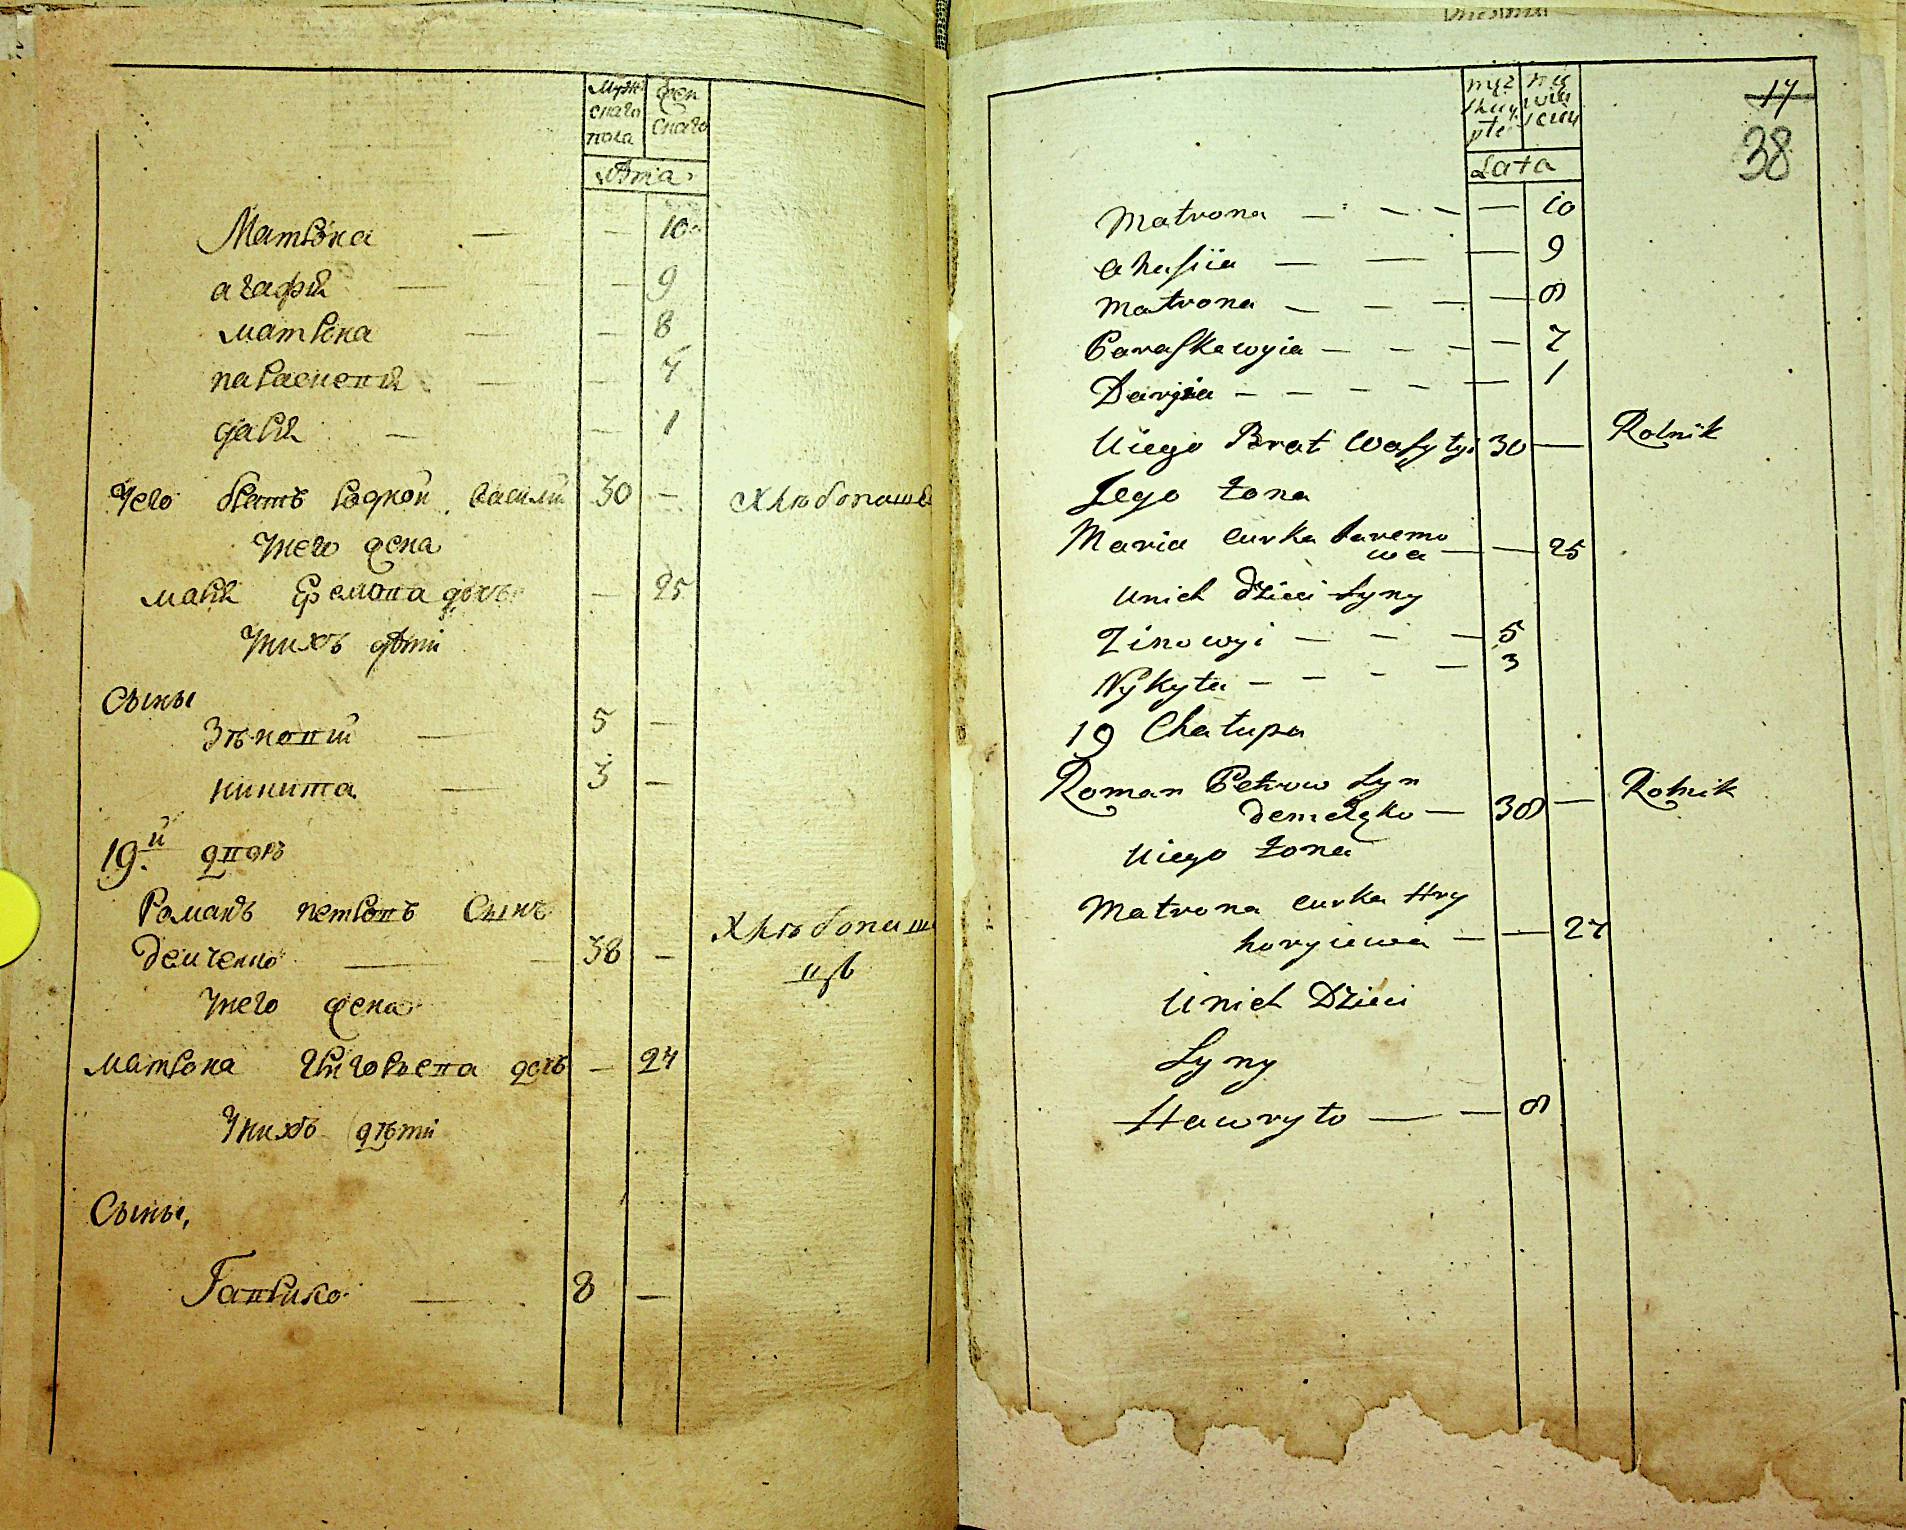 Мужескаго пола
Женскаго
Лѣта
Матрона — — 10
агафія — — 9
матрона — — 8
параскевія — — 7
дарія — — 1
Унего братъ родной василій 30 — Хлѣбопаше
Унего жена
марія Ефемова дочь — 25
Унихъ дѣти
Сыны
Зѣновий — 5 —
никита — 3 —
19.й дворъ
Романъ петровъ Сынъ
демченко — 38 — Хлѣбопаш
ецъ
Унего жена
матрона Григорьева дочь — 27
Унихъ дѣти
Сыны,
Гаврило — 8 —
17
38
Lata
Matrona — — — — 10
ahafiia — — — 9
matrona — — — — 8
Paraskewyia — — — — 7
Daryia — — — — — 1
Uiego Brat Wasyłyi 30 — Rolnik
Jego żona
Maria curka Jaremo
wa — — 25
Unich dzieci syny
Zinowyi — — — 5
Nykyta — — — — 3
19 Chałupa
Roman Petrow syn
demczko — 38 — Rolnik
Uiego żona
Matrona curka Hry
horyiewa — — 27
Unich Dzieci
Syny
Hawryło — — 8